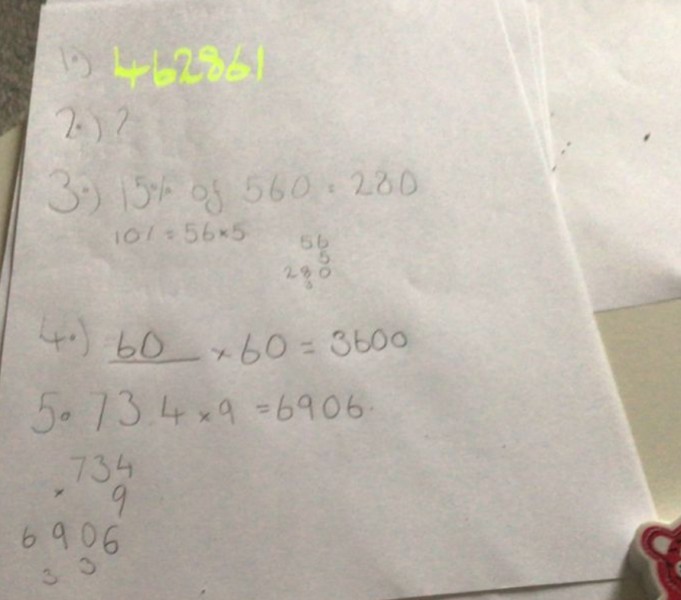 1.) 462861
2.) ?
3.) 15% of 560 = 280
10% = 56×5
56
5
280
3
4.) 60 × 60 = 3600
5. 73.4 × 9 = 6906.
734
× 9
6906
3 3